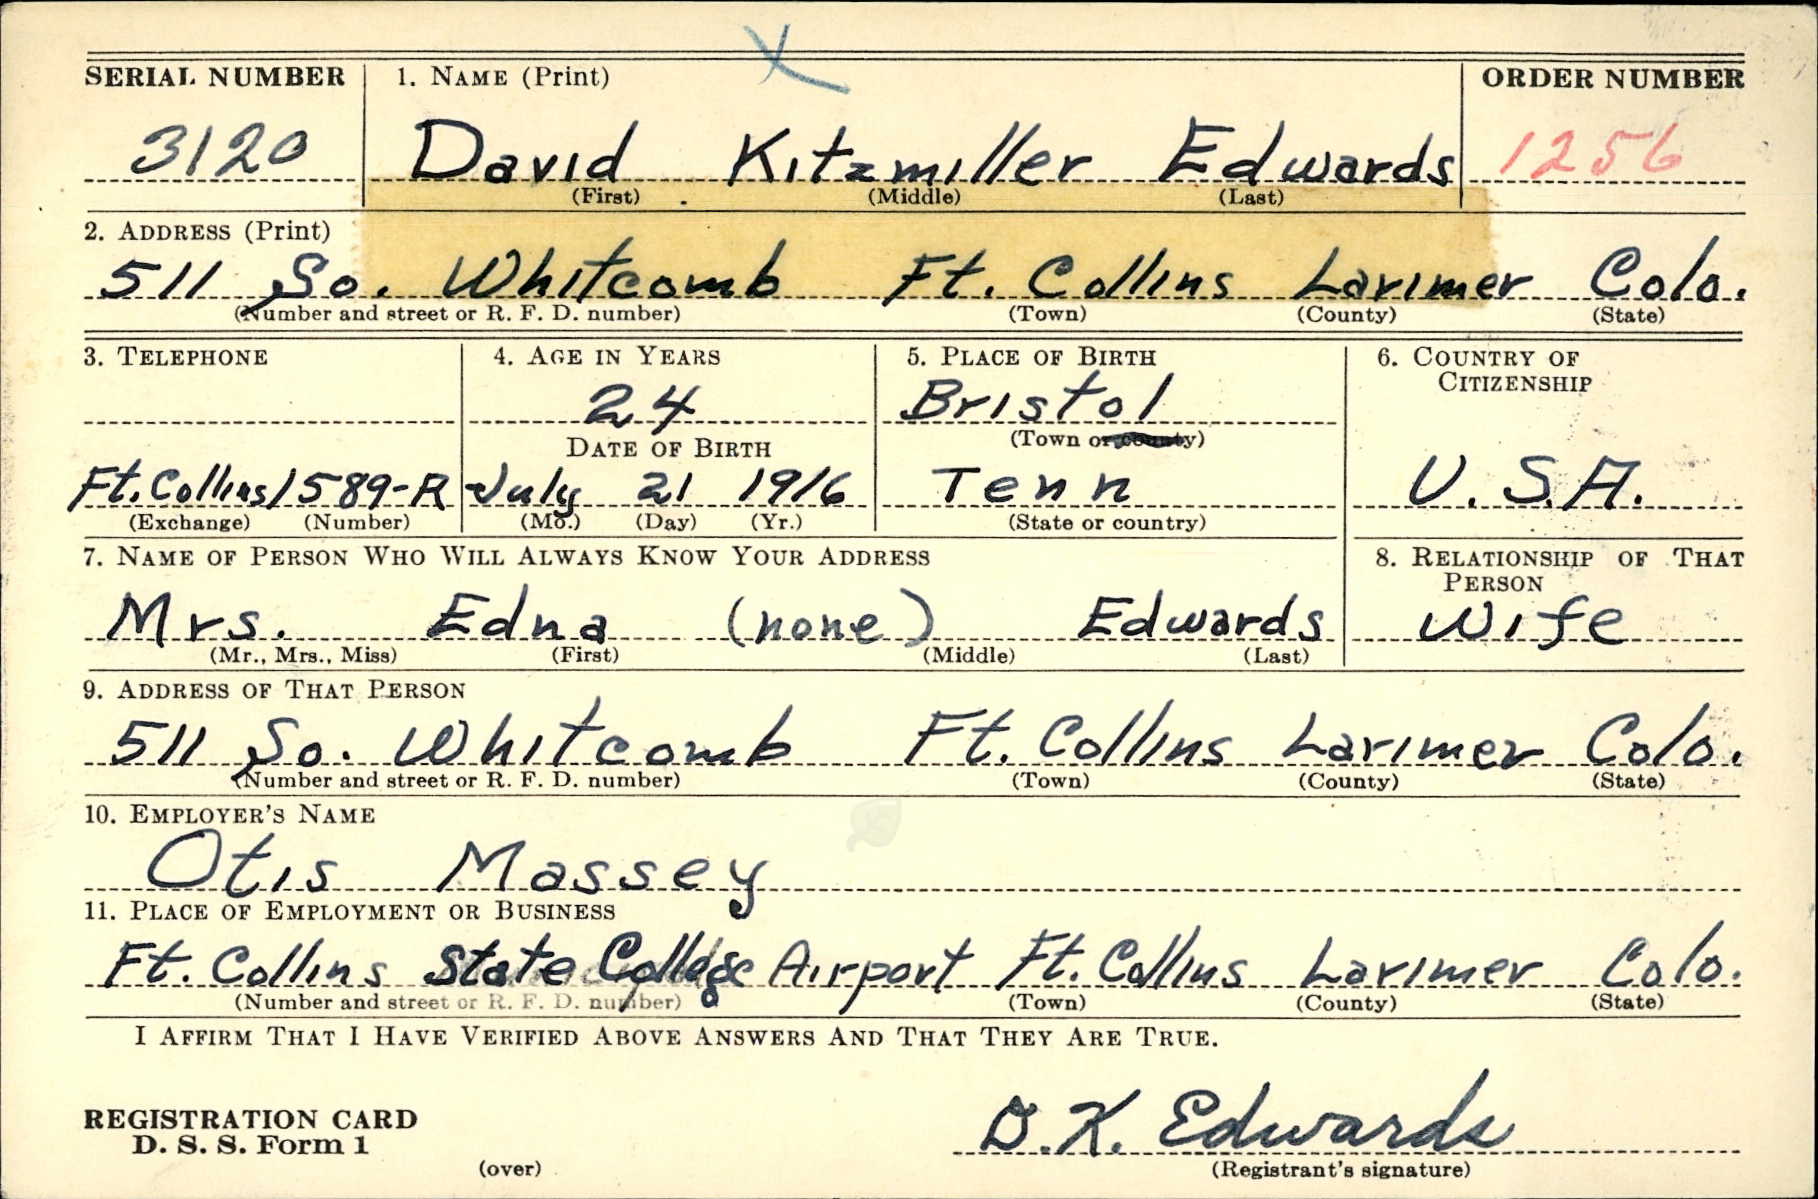 SERIAL NUMBER 1. NAME (Print) ORDER NUMBER
3120 David Kitzmiller Edwards 1256
(First) (Middle) (Last)
2. ADDRESS (Print)
511 So. Whitcomb Ft. Collins Larimer Colo.
(Number and street or R. F. D. number) (Town) (County) (State)
3. TELEPHONE 4. AGE IN YEARS 5. PLACE OF BIRTH 6. COUNTRY OF
CITIZENSHIP
24 Bristol
DATE OF BIRTH (Town or county)
Ft. Collins 1589-R July 21 1916 Tenn U.S.A.
(Exchange) (Number) (Mo.) (Day) (Yr.) (State or country)
7. NAME OF PERSON WHO WILL ALWAYS KNOW YOUR ADDRESS 8. RELATIONSHIP OF THAT
PERSON
Mrs. Edna (none) Edwards Wife
(Mr., Mrs., Miss) (First) (Middle) (Last)
9. ADDRESS OF THAT PERSON
511 So. Whitcomb Ft. Collins Larimer Colo.
(Number and street or R. F. D. number) (Town) (County) (State)
10. EMPLOYER'S NAME
Otis Massey
11. PLACE OF EMPLOYMENT OR BUSINESS
Ft. Collins State College Airport Ft. Collins Larimer Colo.
(Number and street or R. F. D. number) (Town) (County) (State)
I AFFIRM THAT I HAVE VERIFIED ABOVE ANSWERS AND THAT THEY ARE TRUE.
REGISTRATION CARD
D. S. S. Form 1 D. K. Edwards
(over) (Registrant's signature)